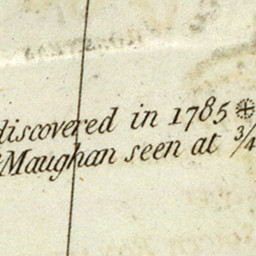 discovered in 1785
Maughan seen at 3/4